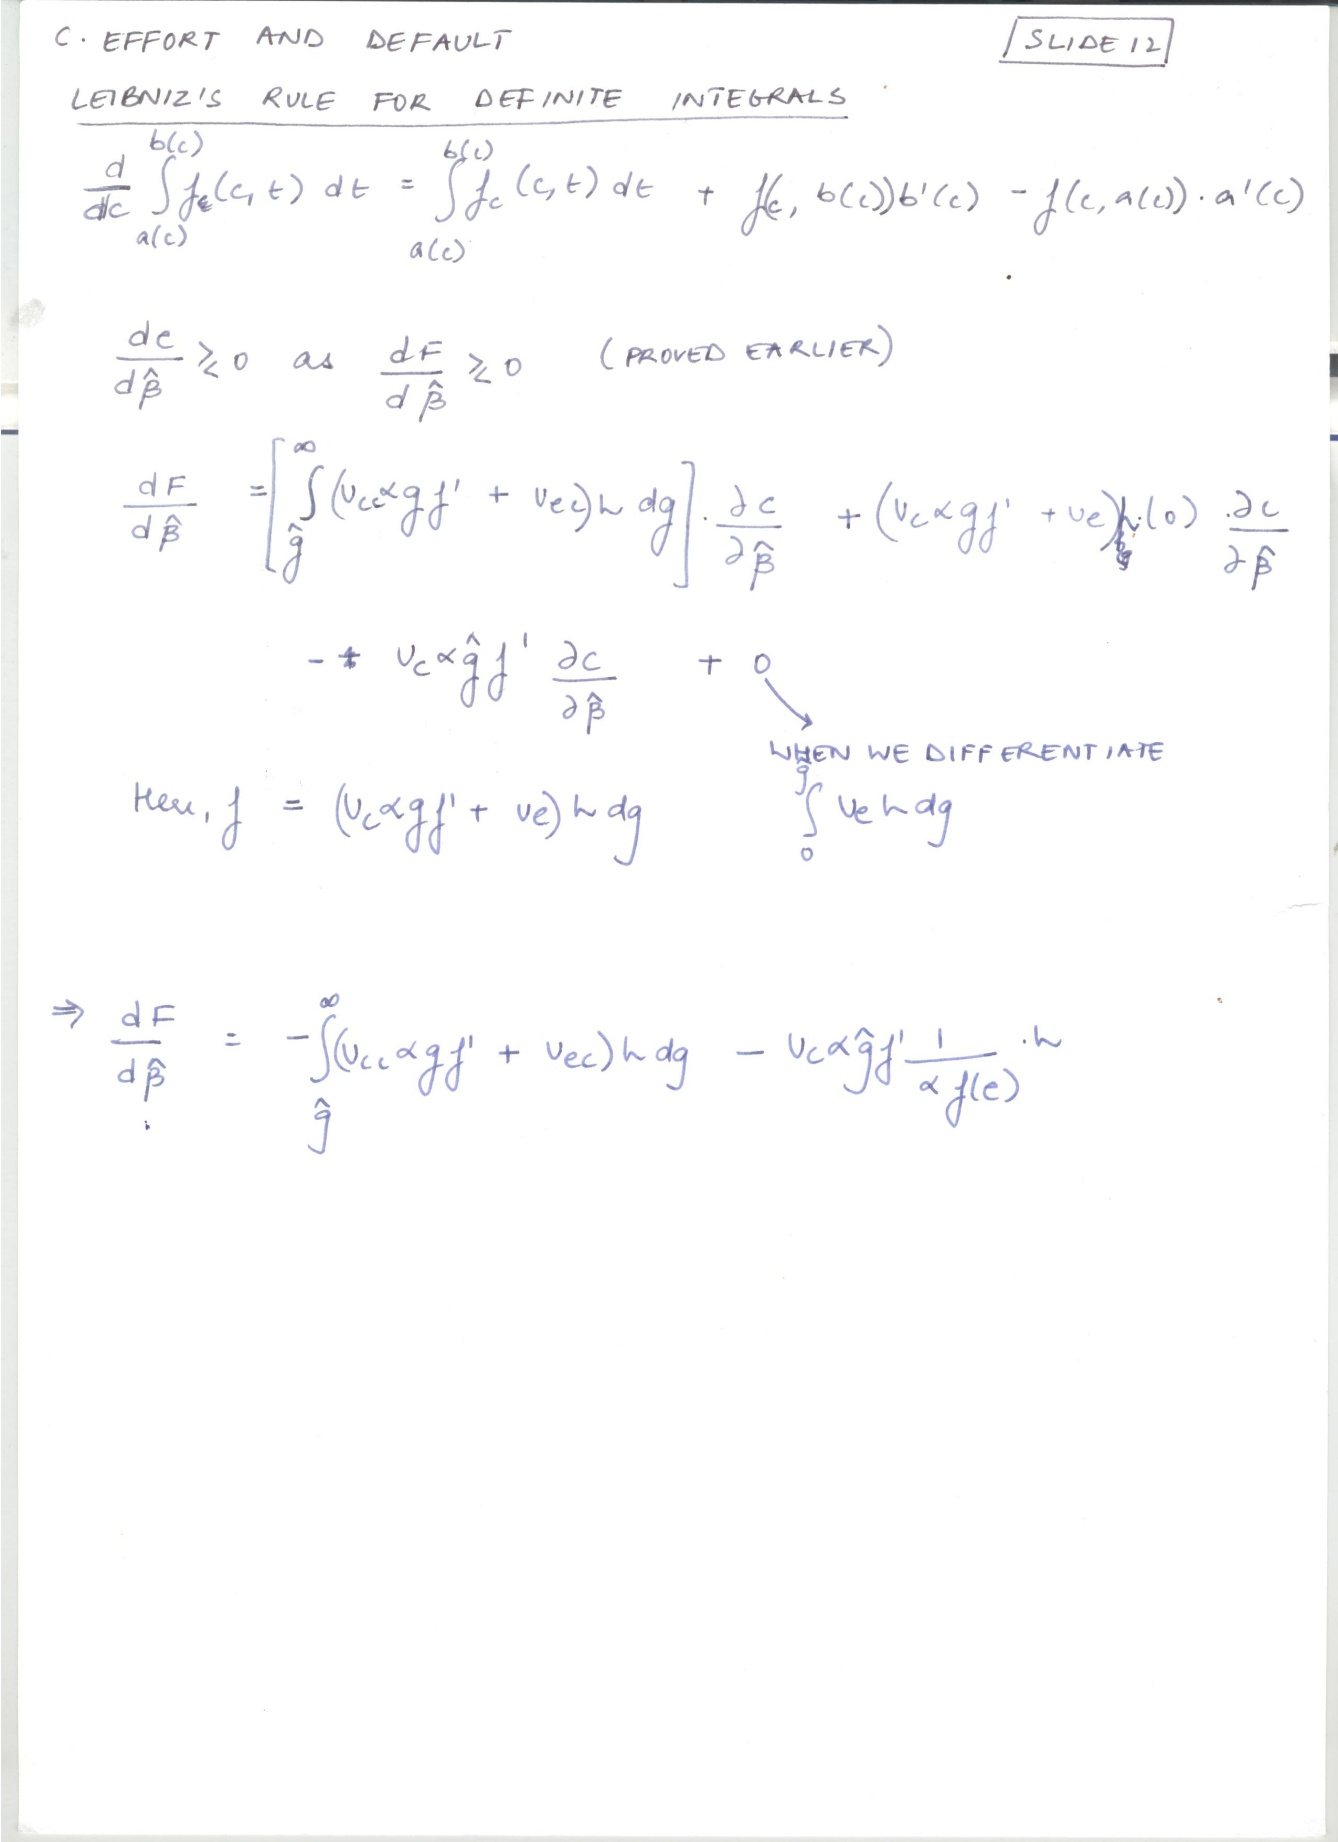 C. EFFORT AND DEFAULT
SLIDE 12
LEIBNIZ'S RULE FOR DEFINITE INTEGRALS
d/dc ∫_{a(c)}^{b(c)} f(c, t) dt = ∫_{a(c)}^{b(c)} f_c (c, t) dt + f(c, b(c)) b'(c) - f(c, a(c)) · a'(c)
de/dβ̂ ≷ 0 as dF/dβ̂ ≷ 0 (PROVED EARLIER)
dF/dβ̂ = [∫_{ĝ}^{∞} (v_cc αgf' + v_ec) h dg] · ∂c/∂β̂ + (v_c αgf' + v_e) h · (0) · ∂c/∂β̂
- v_c αĝf' ∂c/∂β̂ + 0
WHEN WE DIFFERENTIATE
∫_{0}^{ĝ} v_e h dg
Here, f = (v_c αgf' + v_e) h dg
⇒ dF/dβ̂ = -∫_{ĝ}^{∞} (v_cc αgf' + v_ec) h dg - v_c αĝf' 1/(α f(e)) · h